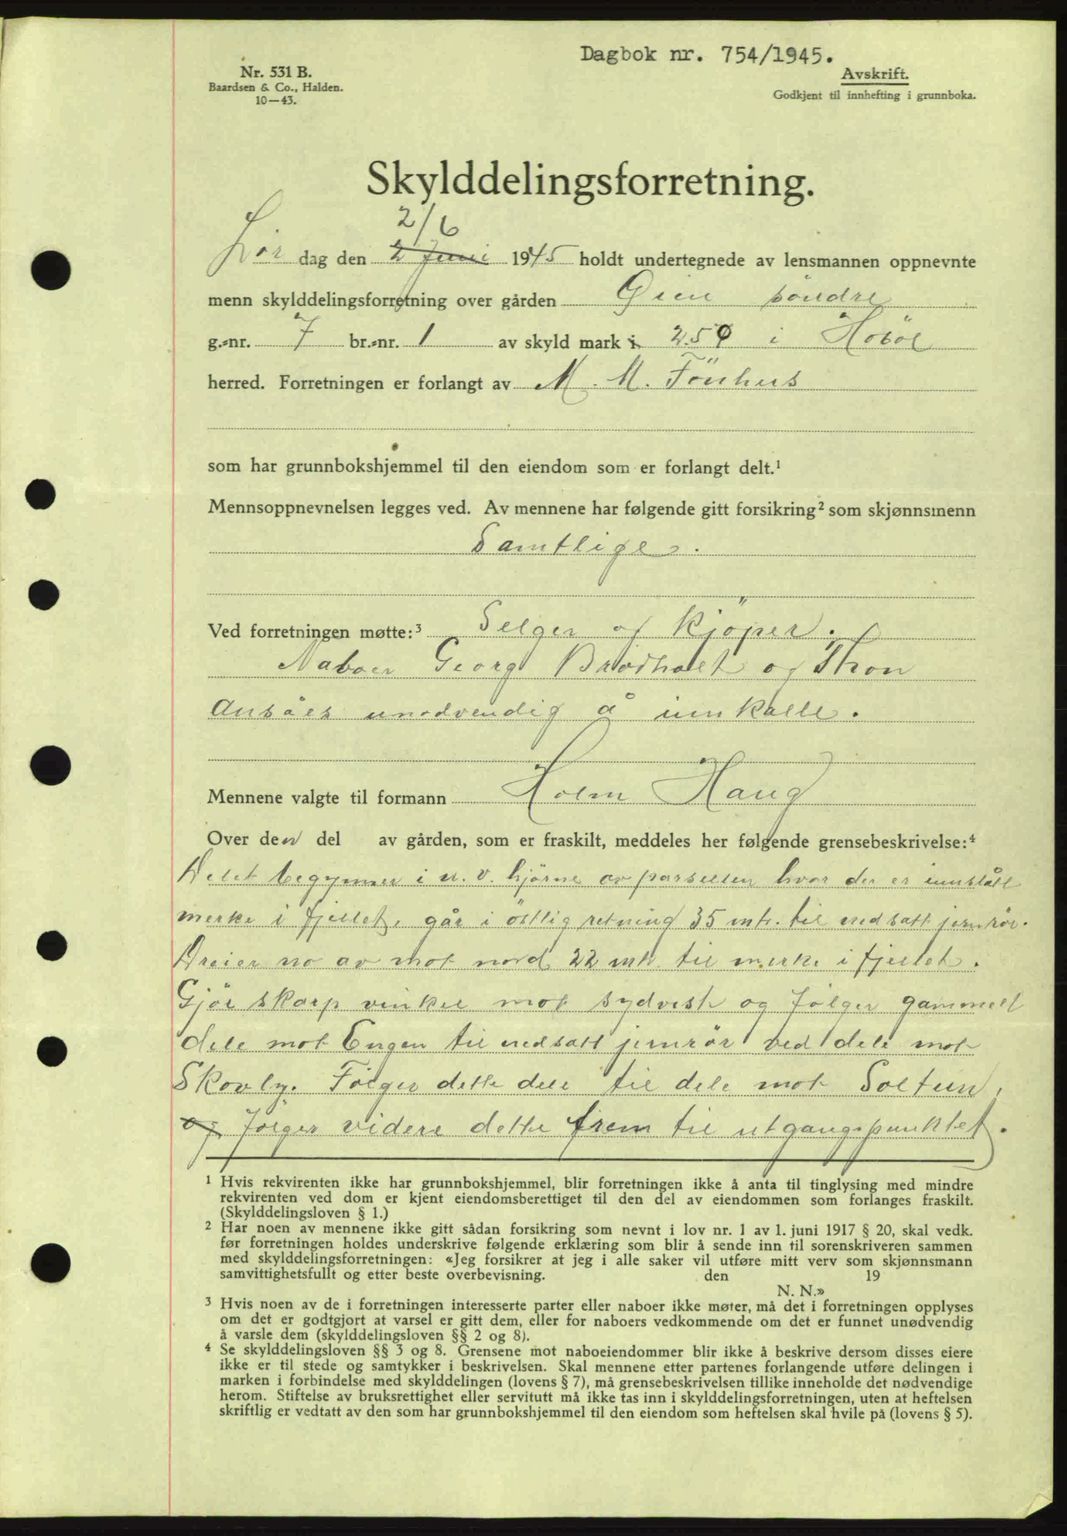 Dagbok nr. 754/1945.
Nr. 531 B.
Baardsen & Co., Halden.
10—43.
Avskrift.
Godkjent til innhefting i grunnboka.
Skylddelingsforretning.
2/6
Lør dag den 2 Juni 1945 holdt undertegnede av lensmannen oppnevnte
menn skylddelingsforretning over gården Øien söndre
g.-nr. 7 br.-nr. 1 av skyld mark 2.50 i Hobøl
herred. Forretningen er forlangt av M. M. Fönhus
som har grunnbokshjemmel til den eiendom som er forlangt delt.¹
Mennsoppnevnelsen legges ved. Av mennene har følgende gitt forsikring² som skjønnsmenn
Samtlige.
Ved forretningen møtte:³ Selger og Kjöper.
Naboer Georg Brødholt og Thon
ansåes unødvendig å innkalle.
Mennene valgte til formann Holm Haug
Over den del av gården, som er fraskilt, meddeles her følgende grensebeskrivelse:⁴
Delet begynner i n. v. hjörne av parsellen hvor der er innslått
merke i fjellet, går i östlig retning 35 mtr. til nedsatt jernrör.
Dreier så av mot nord 22 mtr til merke i fjellet.
Gjör skarp vinkel mot sydvest og følger gammelt
dele mot Engen til nedsatt jernrör ved dele mot
Skovly. Følger dette dele til dele mot Soltun,
og følger videre dette frem til utgangspunktet.
¹ Hvis rekvirenten ikke har grunnbokshjemmel, blir forretningen ikke å anta til tinglysing med mindre
rekvirenten ved dom er kjent eiendomsberettiget til den del av eiendommen som forlanges fraskilt.
(Skylddelingsloven § 1.)
² Har noen av mennene ikke gitt sådan forsikring som nevnt i lov nr. 1 av 1. juni 1917 § 20, skal vedk.
før forretningen holdes underskrive følgende erklæring som blir å sende inn til sorenskriveren sammen
med skylddelingsforretningen: «Jeg forsikrer at jeg i alle saker vil utføre mitt verv som skjønnsmann
samvittighetsfullt og etter beste overbevisning. den 19
N. N.»
³ Hvis noen av de i forretningen interesserte parter eller naboer ikke møter, må det i forretningen opplyses
om det er godtgjort at varsel er gitt dem, eller for naboers vedkommende om det er funnet unødvendig
å varsle dem (skylddelingsloven §§ 2 og 8).
⁴ Se skylddelingsloven §§ 3 og 8. Grensene mot naboeiendommer blir ikke å beskrive dersom disses eiere
ikke er til stede og samtykker i beskrivelsen. Skal mennene etter partenes forlangende utføre delingen i
marken i forbindelse med skylddelingen (lovens § 7), må grensebeskrivelsen tillike inneholde det nødvendige
herom. Stiftelse av bruksrettighet eller servitutt må ikke tas inn i skylddelingsforretningen, uten at heftelsen
skriftlig er vedtatt av den som har grunnbokshjemmel til den eiendom som heftelsen skal hvile på (lovens § 5).